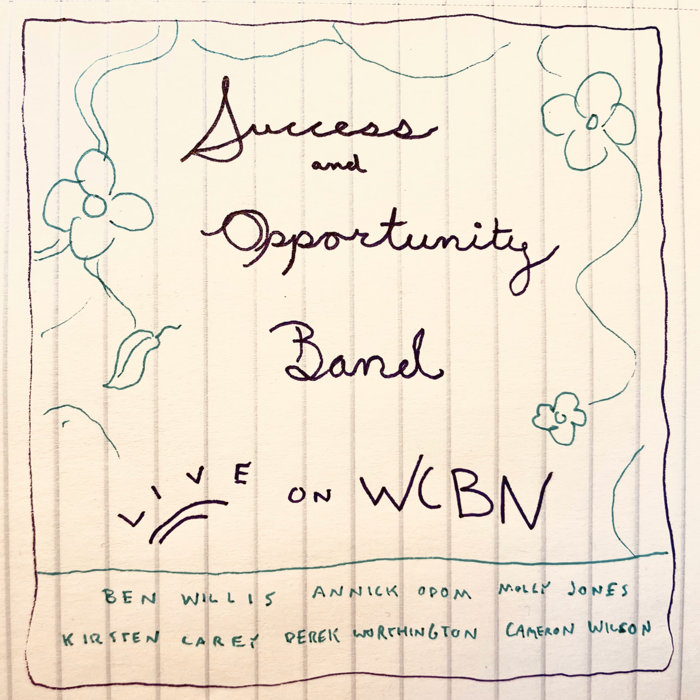 Success
and
Opportunity
Band
LIVE ON WCBN
BEN WILLIS ANNICK ODOM MOLLY JONES
KIRSTEN CAREY DEREK WORTHINGTON CAMERON WILSON